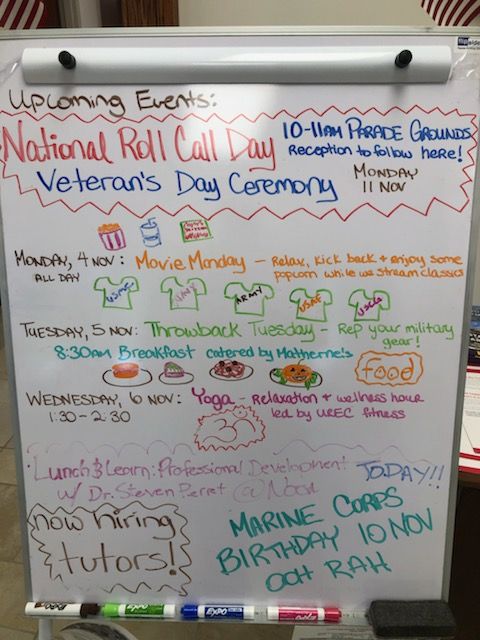 Upcoming Events:
National Roll Call Day
10-11AM PARADE GROUNDS
Reception to follow here!
Veteran's Day Ceremony
MONDAY
11 NOV
MONDAY, 4 NOV: Movie Monday - Relax, kick back & enjoy some
ALL DAY
popcorn while we stream classics
USMC
NAVY
ARMY
USAF
USCG
TUESDAY, 5 NOV: Throwback Tuesday - Rep your military
gear!
8:30AM Breakfast catered by Matherne's
food
WEDNESDAY, 6 NOV: Yoga - Relaxation & wellness hour
1:30-2:30
led by UREC fitness
Lunch & Learn: Professional Development
TODAY!!
w/ Dr. Steven Peret @ Noon
now hiring
tutors!
MARINE CORPS
BIRTHDAY 10 NOV
OOH RAH
EXPO
EXPO
EXPO
EXPO